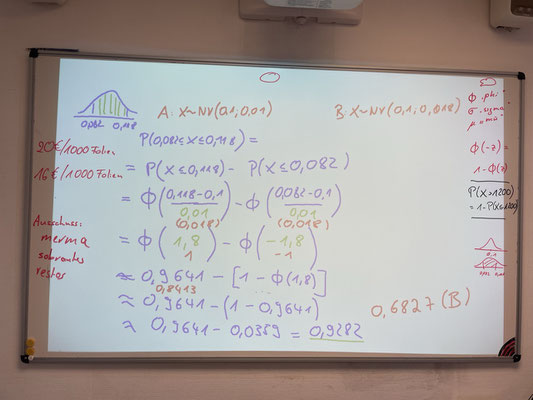 A: X~NV(0,1,0,01)
B: X~NV(0,1;0,018)
0,082 0,118
P(0,082≤X≤0,118) =
20€/1000 Folien
16€/1000 Folien
= P(X≤0,118) - P(X≤0,082)
= Φ(0,118-0,1 / 0,01) - Φ(0,082-0,1 / 0,01)
(0,018) (0,018)
Ausschuss:
merma
restos
= Φ(1,8) - Φ(-1,8)
1 -1
≈ 0,9641 - [1 - Φ(1,8)]
0,8413 ...
≈ 0,9641 - (1 - 0,9641)
≈ 0,9641 - 0,0359 = 0,9282
0,6827 (B)
Φ "phi"
σ "sigma"
μ "mü"
Φ(-z) =
1-Φ(z)
P(X>1200)
= 1-P(X≤1200)
0,1